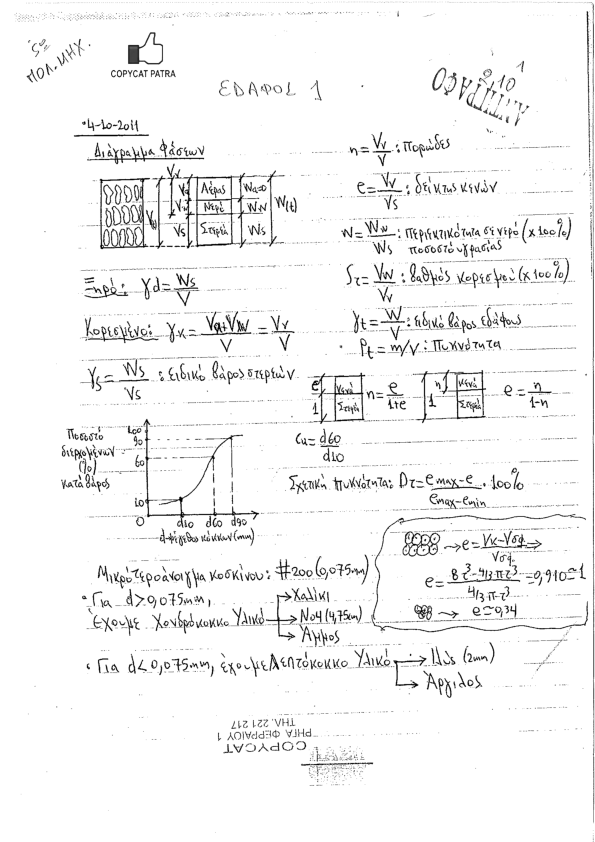 5º
ΠΟΛ. ΜΗΧ.
COPYCAT PATRA
ΕΔΑΦΟΣ 1
1
2,10
ΑΝΤΙΓΡΑΦΟ
•4-10-2011
Διάγραμμα Φάσεων
Vv
Va Αέρας Wa=0
Vw Νερό Ww W(t)
Vs Στερεά Ws
n = Vv/V : Πορώδες
e = Vv/Vs : δείκτης κενών
w = Ww/Ws : περιεκτικότητα σε νερό (x 100%)
ποσοστό υγρασίας
Sτ = Vw/Vv : βαθμός κορεσμού (x 100%)
Ξηρό: γd = Ws/V
γt = W/V : ειδικό βάρος εδάφους
Κορεσμένο: γκ = Va+Vw/V = Vv/V
• ρt = m/V : Πυκνότητα
γs = Ws/Vs : ειδικό βάρος στερεών
e Κενά
1 Στερεά
n = e/1+e
n Κενά
1 Στερεά
e = n/1-n
Ποσοστό
διερχομένων
(%)
κατά βάρος
100
90
60
10
0
d10 d60 d90
d-μέγεθος κόκκων (mm)
Cu = d60/d10
Σχετική πυκνότητα: Dτ = emax-e/emax-emin · 100%
→ e = Vκ-Vσφ/Vσφ ⇒
e = 8τ³-4/3πτ³/4/3πτ³ = 0,910 ≃ 1
→ e ≃ 0,34
Μικρότερο άνοιγμα κοσκίνου: #200 (0,075mm)
• Για d>0,075mm,
Έχουμε Χονδρόκοκκο Υλικό
→ Χαλίκι
→ Νο4 (4,75mm)
→ Άμμος
• Για d<0,075mm, έχουμε Λεπτόκοκκο Υλικό → Ιλύς (2mm)
→ Άργιλος
COPYCAT
ΡΗΓΑ ΦΕΡΡΑΙΟΥ 1
ΤΗΛ. 221 217